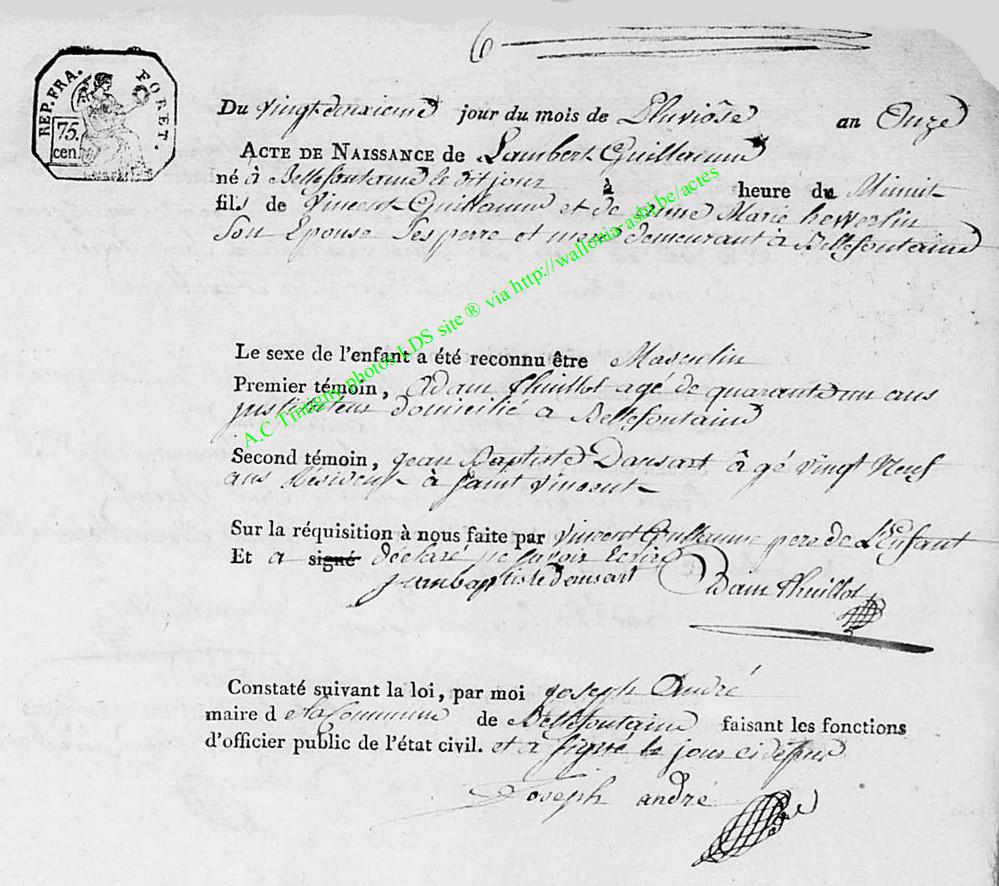 6
REP. FRA. FORET.
75. cen.
Du vingt deuxieme jour du mois de Pluviôse an Onze
ACTE DE NAISSANCE de Lambert Guillaume
né à Bellefontaine le dit jour à heure du Minuit
fils de Vincent Guillaume et de Marie
Son Epouse Ses perre et mere demeurant à Bellefontaine
Le sexe de l'enfant a été reconnu être Masculin
Premier témoin, Adam Thuillot agé de quarante un ans
domicilié a Bellefontaine
Second témoin, jean Baptiste Dansart âgé vingt Neuf
ans Résident à saint vincent
Sur la réquisition à nous faite par Vincent Guillaume pere de L'Enfant
Et a signé déclaré ne savoir Ecrire
jean baptiste dansart Adam Thuillot
Constaté suivant la loi, par moi joseph André
maire d e la Commune de Bellefontaine faisant les fonctions
d'officier public de l'état civil. et a signé le jour ci desus
Joseph andré
A.C Timigny photos LDS site ® via http://wallonia.asbl.be/actes